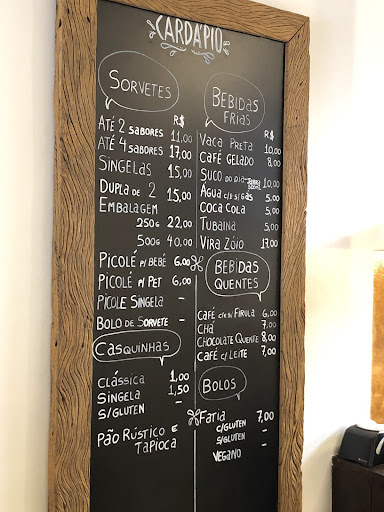 CARDÁPIO
SORVETES
R$
ATÉ 2 SABORES 11,00
ATÉ 4 SABORES 17,00
SINGELAS 15,00
DUPLA DE 2 15,00
EMBALAGEM
250g 22,00
500g 40,00
PICOLÉ P/ BEBÊ 6,00
PICOLÉ P/ PET 6,00
PICOLE SINGELA -
BOLO DE SORVETE -
CASQUINHAS
CLÁSSICA 1,00
SINGELA 1,50
S/GLUTEN -
PÃO RÚSTICO E
TAPIOCA
BEBIDAS
FRIAS
R$
VACA PRETA 10,00
CAFÉ GELADO 8,00
SUCO DO DIA 10,00
ÁGUA C/ S/ GÁS 5,00
COCA COLA 5,00
TUBAINA 5,00
VIRA ZÓIO 17,00
BEBIDAS
QUENTES
CAFÉ C/ S/ FIRULA 6,00
CHÁ 7,00
CHOCOLATE QUENTE 8,00
CAFÉ C/ LEITE 7,00
BOLOS
FATIA 7,00
C/GLUTEN -
S/GLUTEN -
VEGANO -